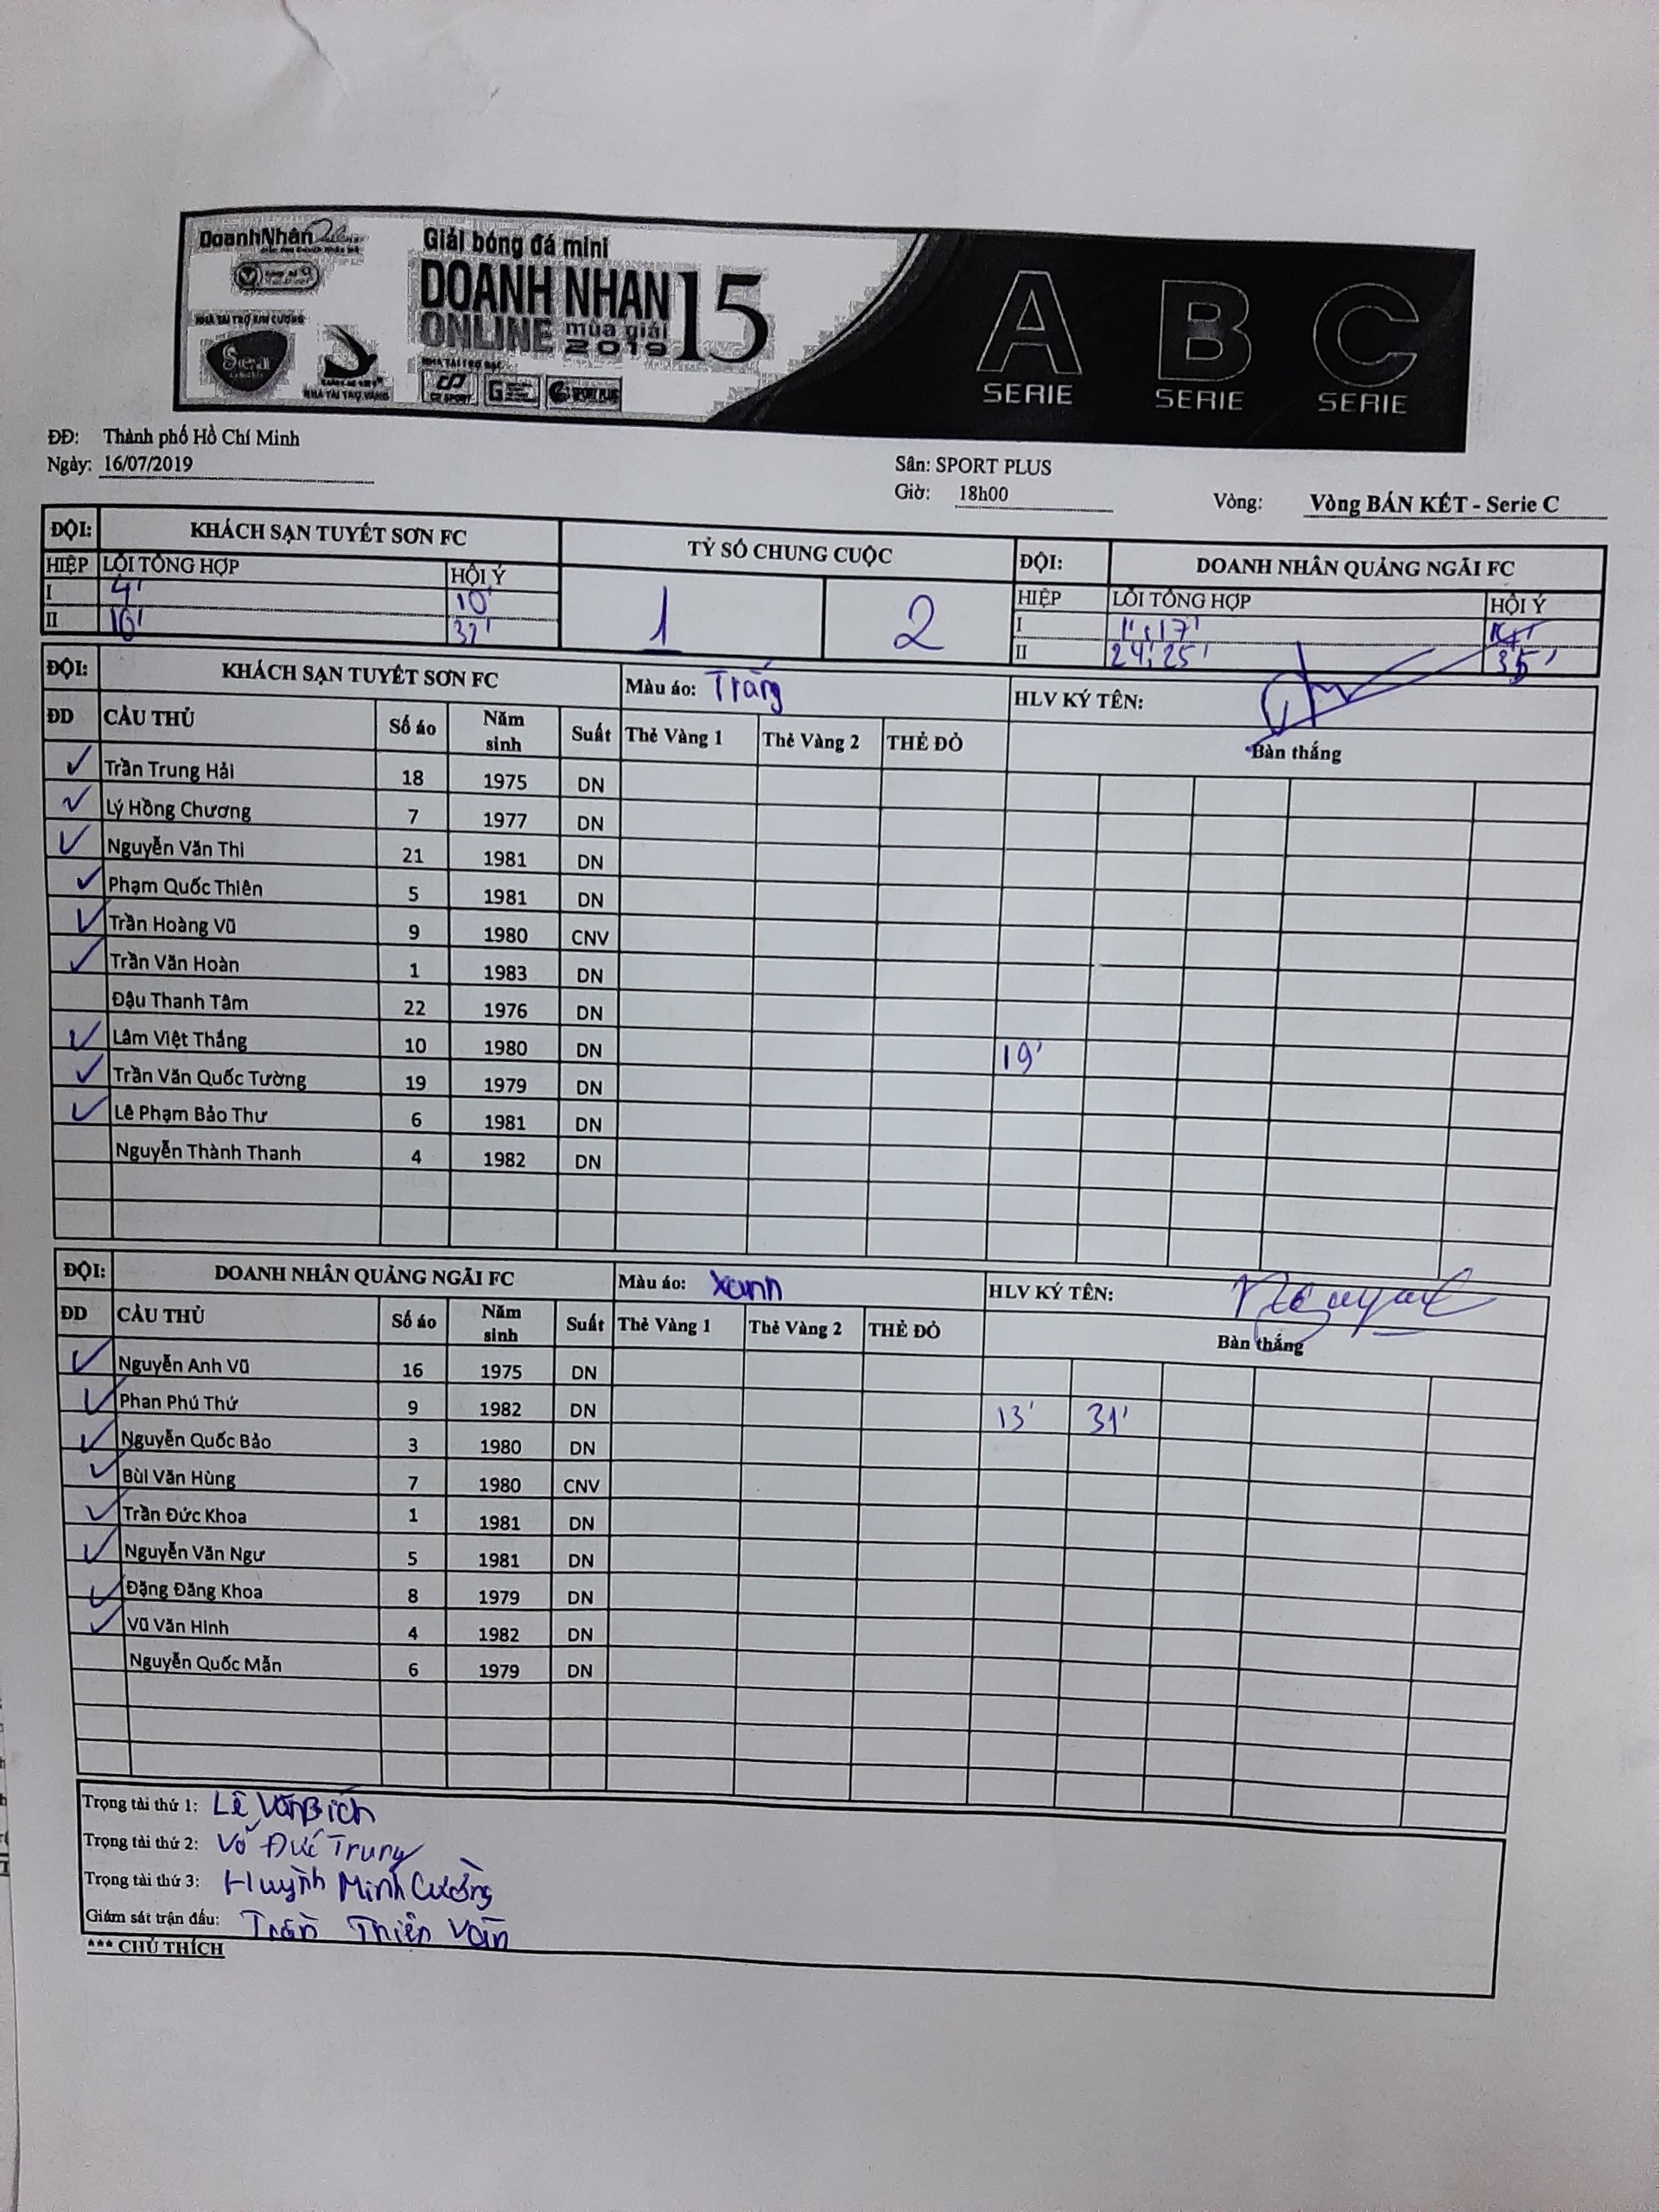 DoanhNhân Online
Giải bóng đá mini
DOANH NHAN 15
ONLINE mùa giải 2019
NHÀ TÀI TRỢ KIM CƯƠNG
NHÀ TÀI TRỢ VÀNG
SPORT PLUS
A B C
SERIE SERIE SERIE
ĐĐ: Thành phố Hồ Chí Minh
Ngày: 16/07/2019
Sân: SPORT PLUS
Giờ: 18h00 Vòng: Vòng BÁN KẾT - Serie C
ĐỘI: KHÁCH SẠN TUYẾT SƠN FC TỶ SỐ CHUNG CUỘC ĐỘI: DOANH NHÂN QUẢNG NGÃI FC
HIỆP LỖI TỔNG HỢP HỘI Ý 1 2 HIỆP LỖI TỔNG HỢP HỘI Ý
I 4' 10' I 1', 17'
II 16' 32' II 24', 25' 35'
ĐỘI: KHÁCH SẠN TUYẾT SƠN FC Màu áo: Trắng HLV KÝ TÊN:
ĐD CẦU THỦ Số áo Năm sinh Suất Thẻ Vàng 1 Thẻ Vàng 2 THẺ ĐỎ Bàn thắng
✓ Trần Trung Hải 18 1975 DN
✓ Lý Hồng Chương 7 1977 DN
✓ Nguyễn Văn Thi 21 1981 DN
✓ Phạm Quốc Thiên 5 1981 DN
✓ Trần Hoàng Vũ 9 1980 CNV
✓ Trần Văn Hoàn 1 1983 DN
Đậu Thanh Tâm 22 1976 DN
✓ Lâm Việt Thắng 10 1980 DN 19'
✓ Trần Văn Quốc Tường 19 1979 DN
✓ Lê Phạm Bảo Thư 6 1981 DN
Nguyễn Thành Thanh 4 1982 DN
ĐỘI: DOANH NHÂN QUẢNG NGÃI FC Màu áo: Xanh HLV KÝ TÊN:
ĐD CẦU THỦ Số áo Năm sinh Suất Thẻ Vàng 1 Thẻ Vàng 2 THẺ ĐỎ Bàn thắng
✓ Nguyễn Anh Vũ 16 1975 DN
✓ Phan Phú Thứ 9 1982 DN 13' 31'
✓ Nguyễn Quốc Bảo 3 1980 DN
✓ Bùi Văn Hùng 7 1980 CNV
✓ Trần Đức Khoa 1 1981 DN
✓ Nguyễn Văn Ngư 5 1981 DN
✓ Đặng Đăng Khoa 8 1979 DN
✓ Vũ Văn Hinh 4 1982 DN
Nguyễn Quốc Mẫn 6 1979 DN
Trọng tài thứ 1: Lê Văn Bích
Trọng tài thứ 2: Võ Đức Trung
Trọng tài thứ 3: Huỳnh Minh Cường
Giám sát trận đấu: Trần Thiên Vân
*** CHÚ THÍCH